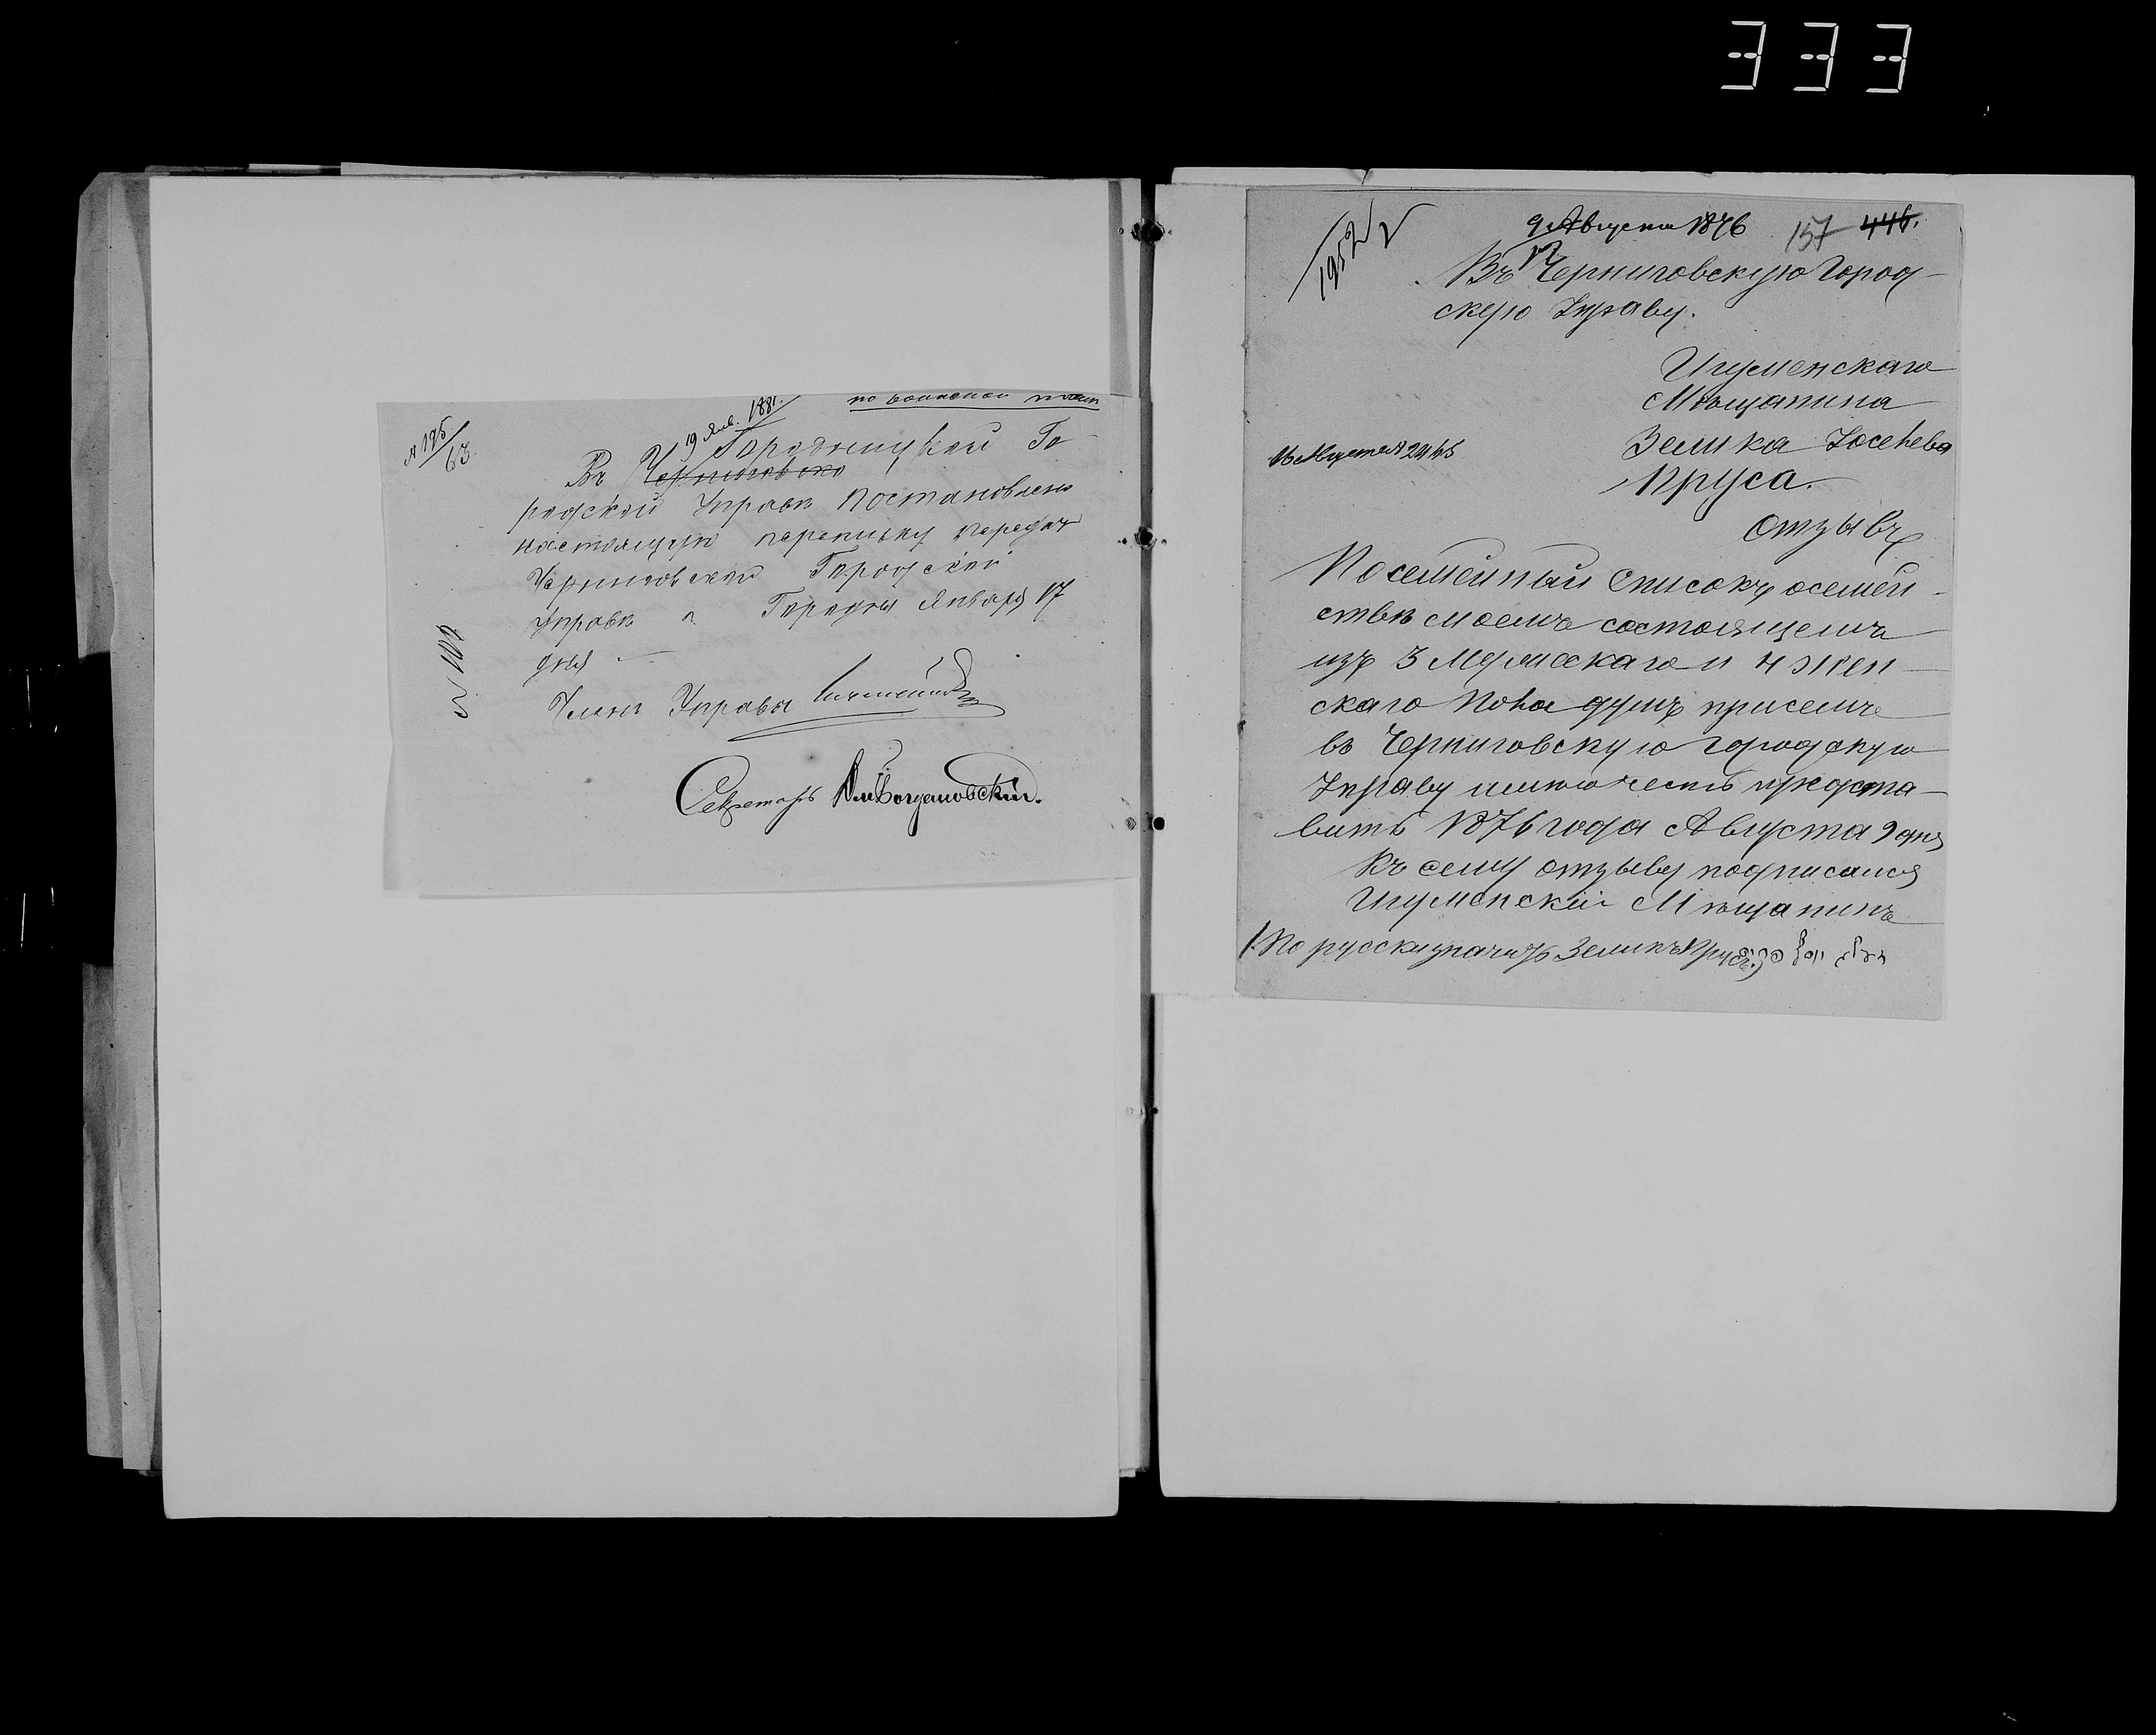 333
по воинской повин
19 Янв. 1881.
№ 195/63
Въ Городницкой Го-
родской Управѣ постановлено
настоящую переписку передать
Черниговской Городской
Управѣ г. Городня Января 17
дня
№ 108
Членъ Управы
Секретарь Богдановскій.
9 Августа 1876
157 446.
1952/2
Въ Черниговскую Город-
скую Управу.
Игуменскаго
Мѣщанина
Зелика Іоселева
Пруса.
16 Августа № 2465
Отзывъ
Посемейный списокъ осемей-
ствѣ моемъ состоящемъ
изъ 3 Мужескаго и 4 жен-
скаго Пола душъ присемъ
въ Черниговскую городскую
Управу имѣю честь предста-
вить 1876 года Августа 9 дня
Къ сему отзыву подписался
Игуменскій Мѣщанинъ
По русски значитъ Зеликъ Прусъ.)